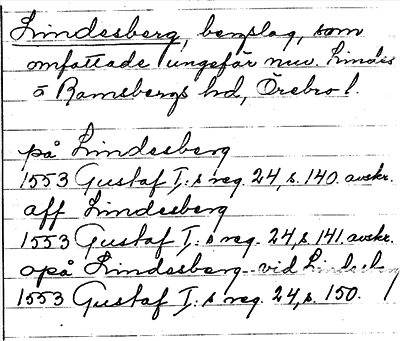 Lindesberg, bergslag, som
omfattade ungefär nuv. Lindes
o Ramsbergs hd, Örebro l.
på Lindesberg
1553 Gustaf I:s reg. 24, s. 140. avskr.
aff Lindesberg
1553 Gustaf I:s reg. 24, s. 141. avskr.
opå Lindesberg - vid Lindesberg
1553 Gustaf I:s reg. 24, s. 150.